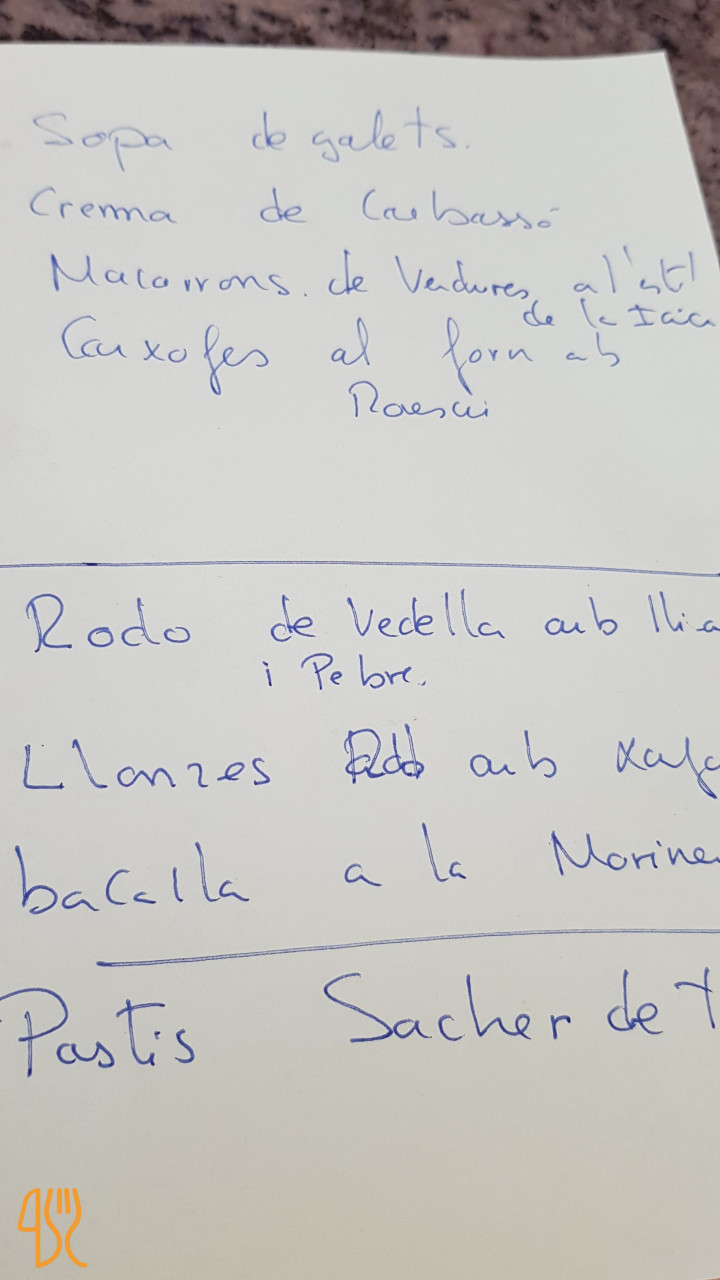 Sopa de galets.
Crema de Carbassó
Macarrons de Verdures a l'estil
de la Iaia
Carxofes al forn amb
Romescu
Rodo de Vedella amb
i Pebre.
Llanzes amb
bacalla a la
Pastis Sacher de